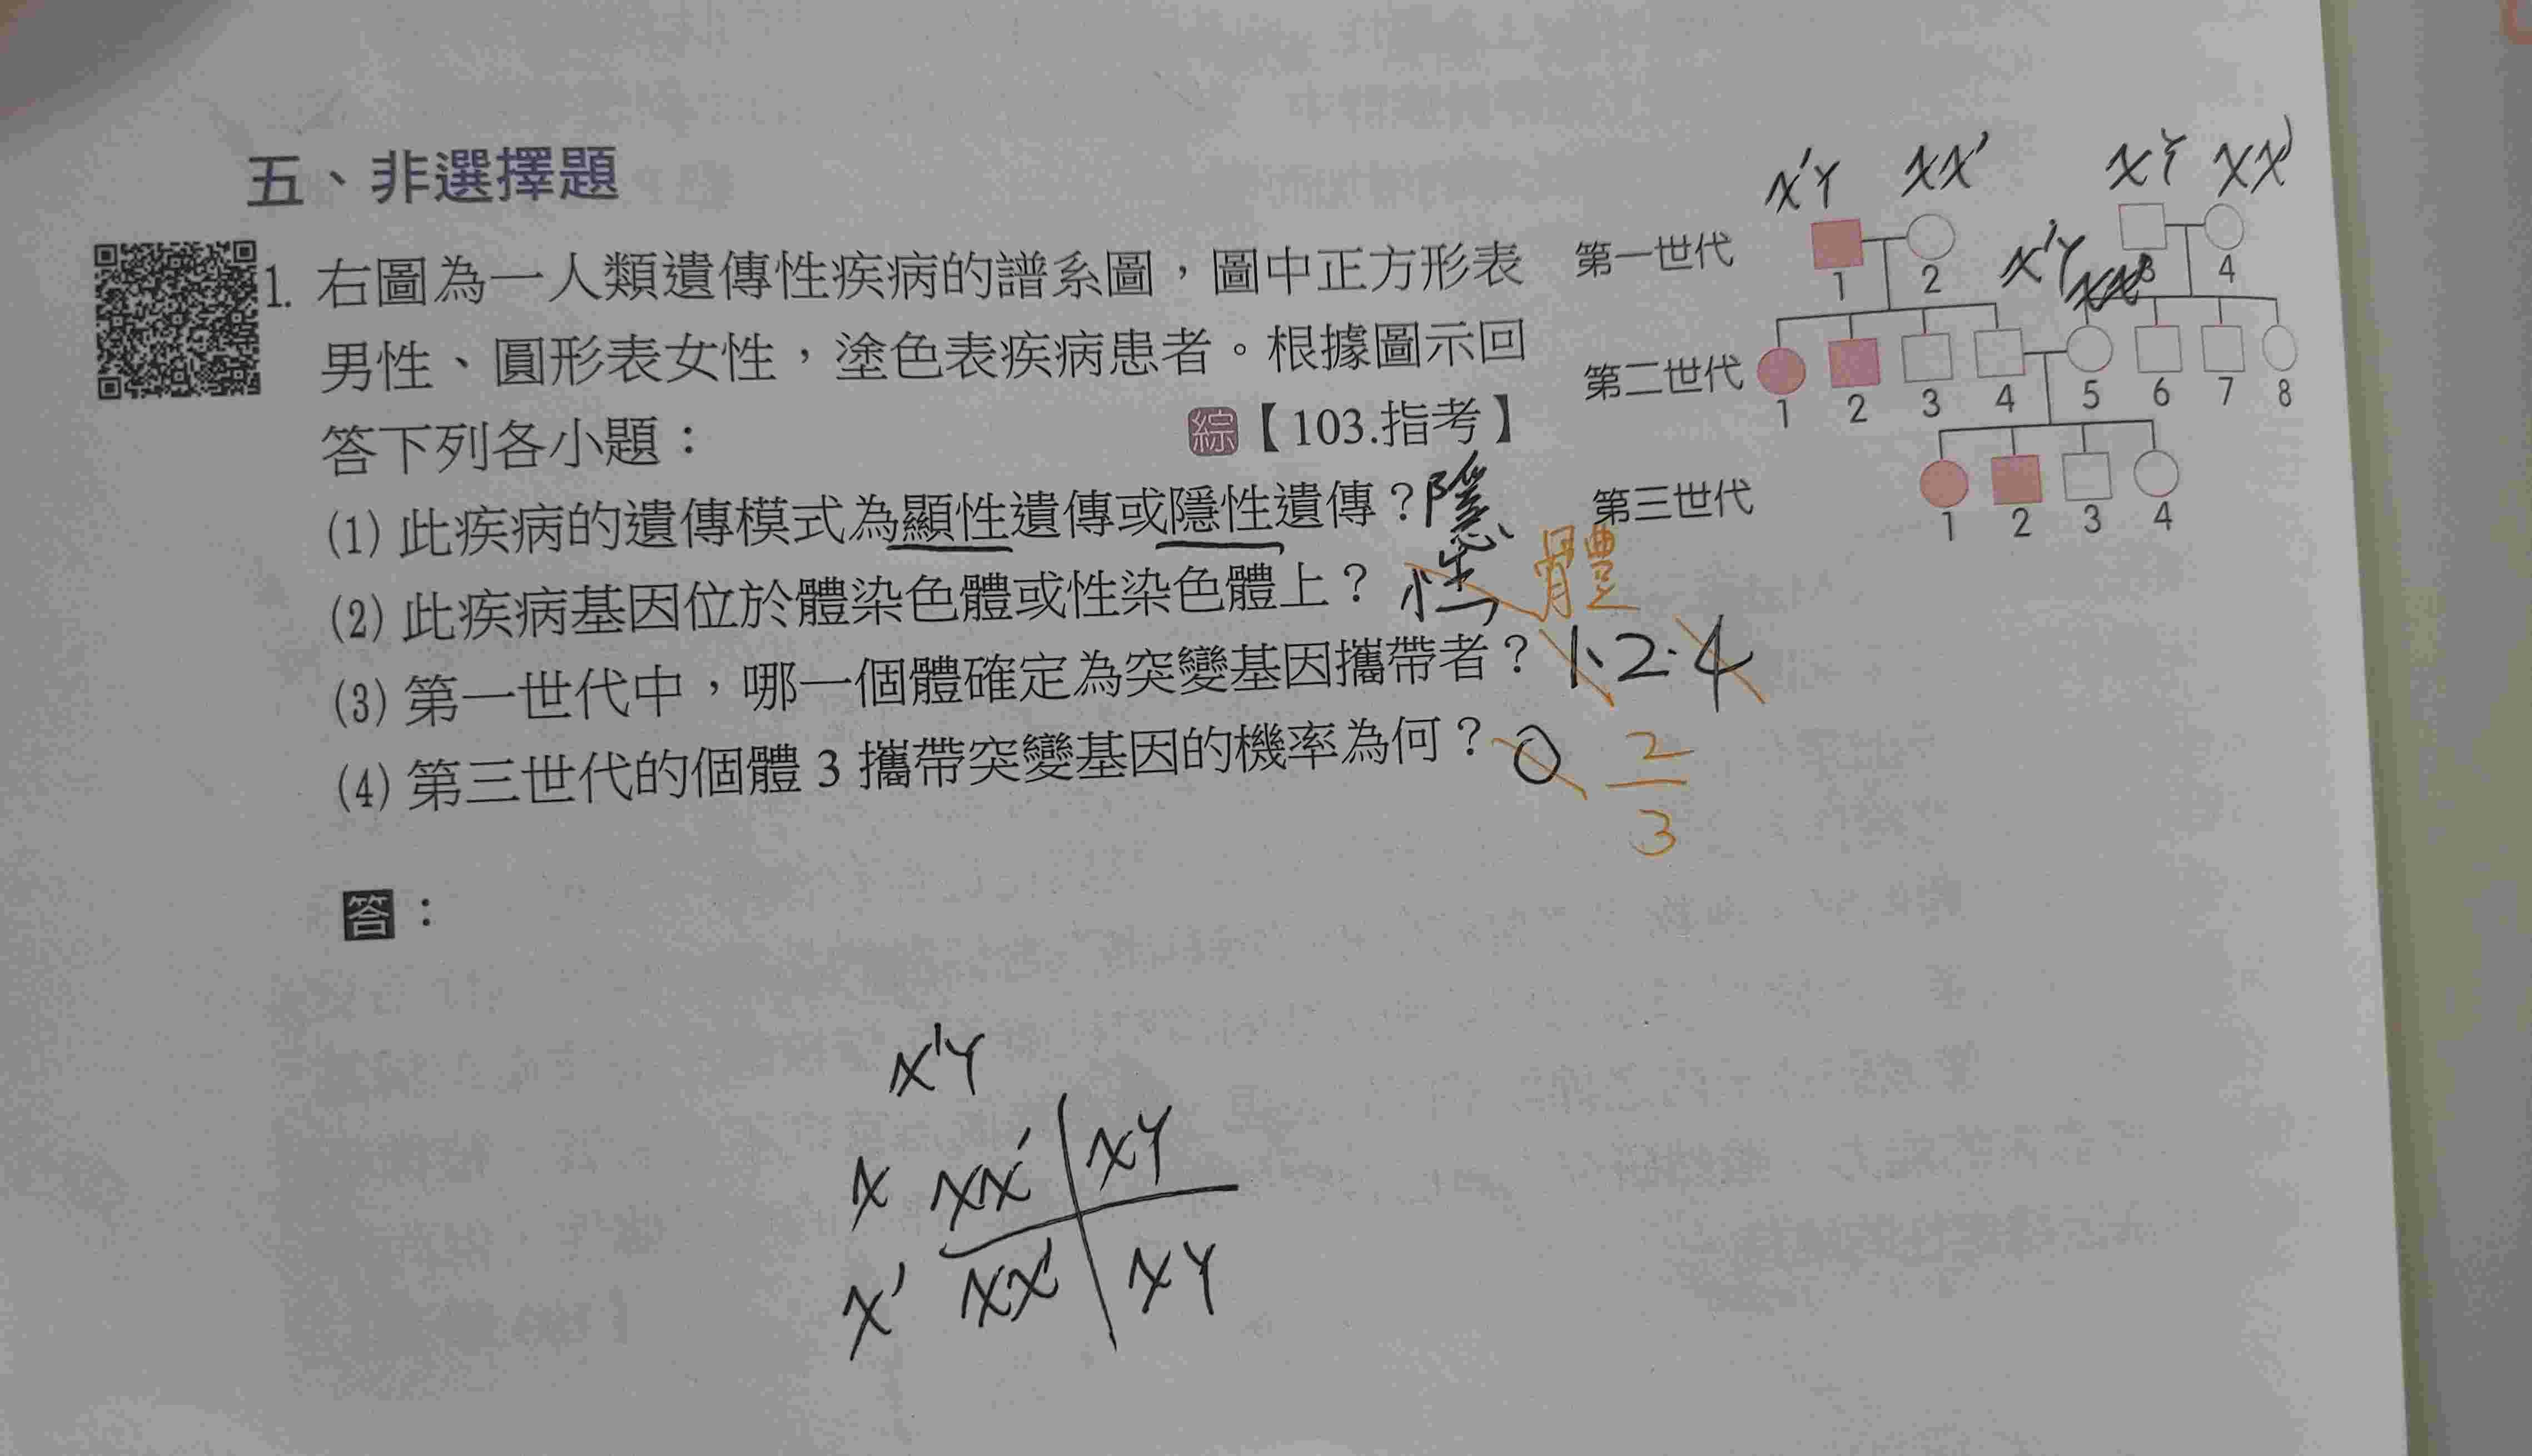 五、非選擇題
1. 右圖為一人類遺傳性疾病的譜系圖，圖中正方形表
男性、圓形表女性，塗色表疾病患者。根據圖示回
答下列各小題：
綜【103.指考】
(1) 此疾病的遺傳模式為顯性遺傳或隱性遺傳？隱
(2) 此疾病基因位於體染色體或性染色體上？ 性 體
(3) 第一世代中，哪一個體確定為突變基因攜帶者？ 1、2、4
(4) 第三世代的個體 3 攜帶突變基因的機率為何？ 0 2/3
答：
X'Y XX' XY XX'
第一世代
1 2 3 4
X'Y XX'
第二世代
1 2 3 4 5 6 7 8
第三世代
1 2 3 4
X'Y
X XX' XY
X' XX' XY